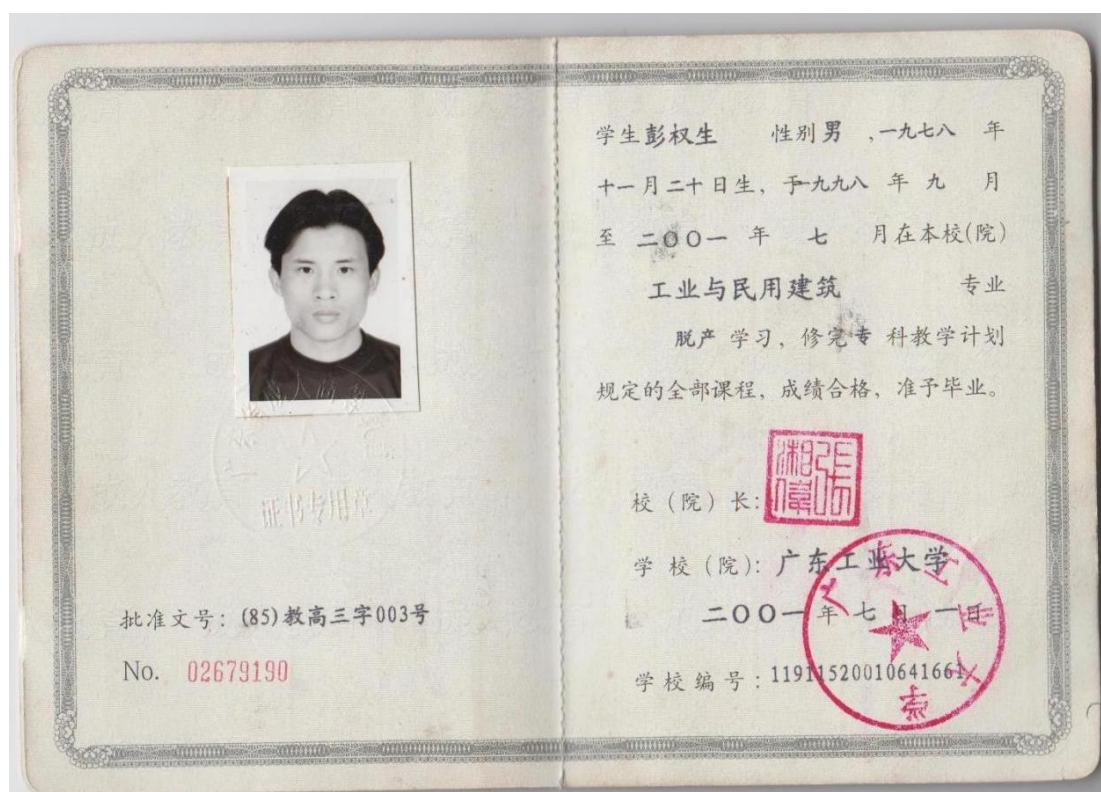 证书专用章
批准文号：(85)教高三字003号
No. 02679190
学生彭权生 性别男，一九七八 年
十一月二十日生，于一九九八 年 九 月
至 二〇〇一 年 七 月在本校(院)
工业与民用建筑 专业
脱产 学习，修完专 科教学计划
规定的全部课程，成绩合格，准予毕业。
校（院）长：
張湘偉
学 校（院）：广东工业大学
二〇〇一 年 七 月 一 日
学 校 编 号：11911520010641661
广东工业大学